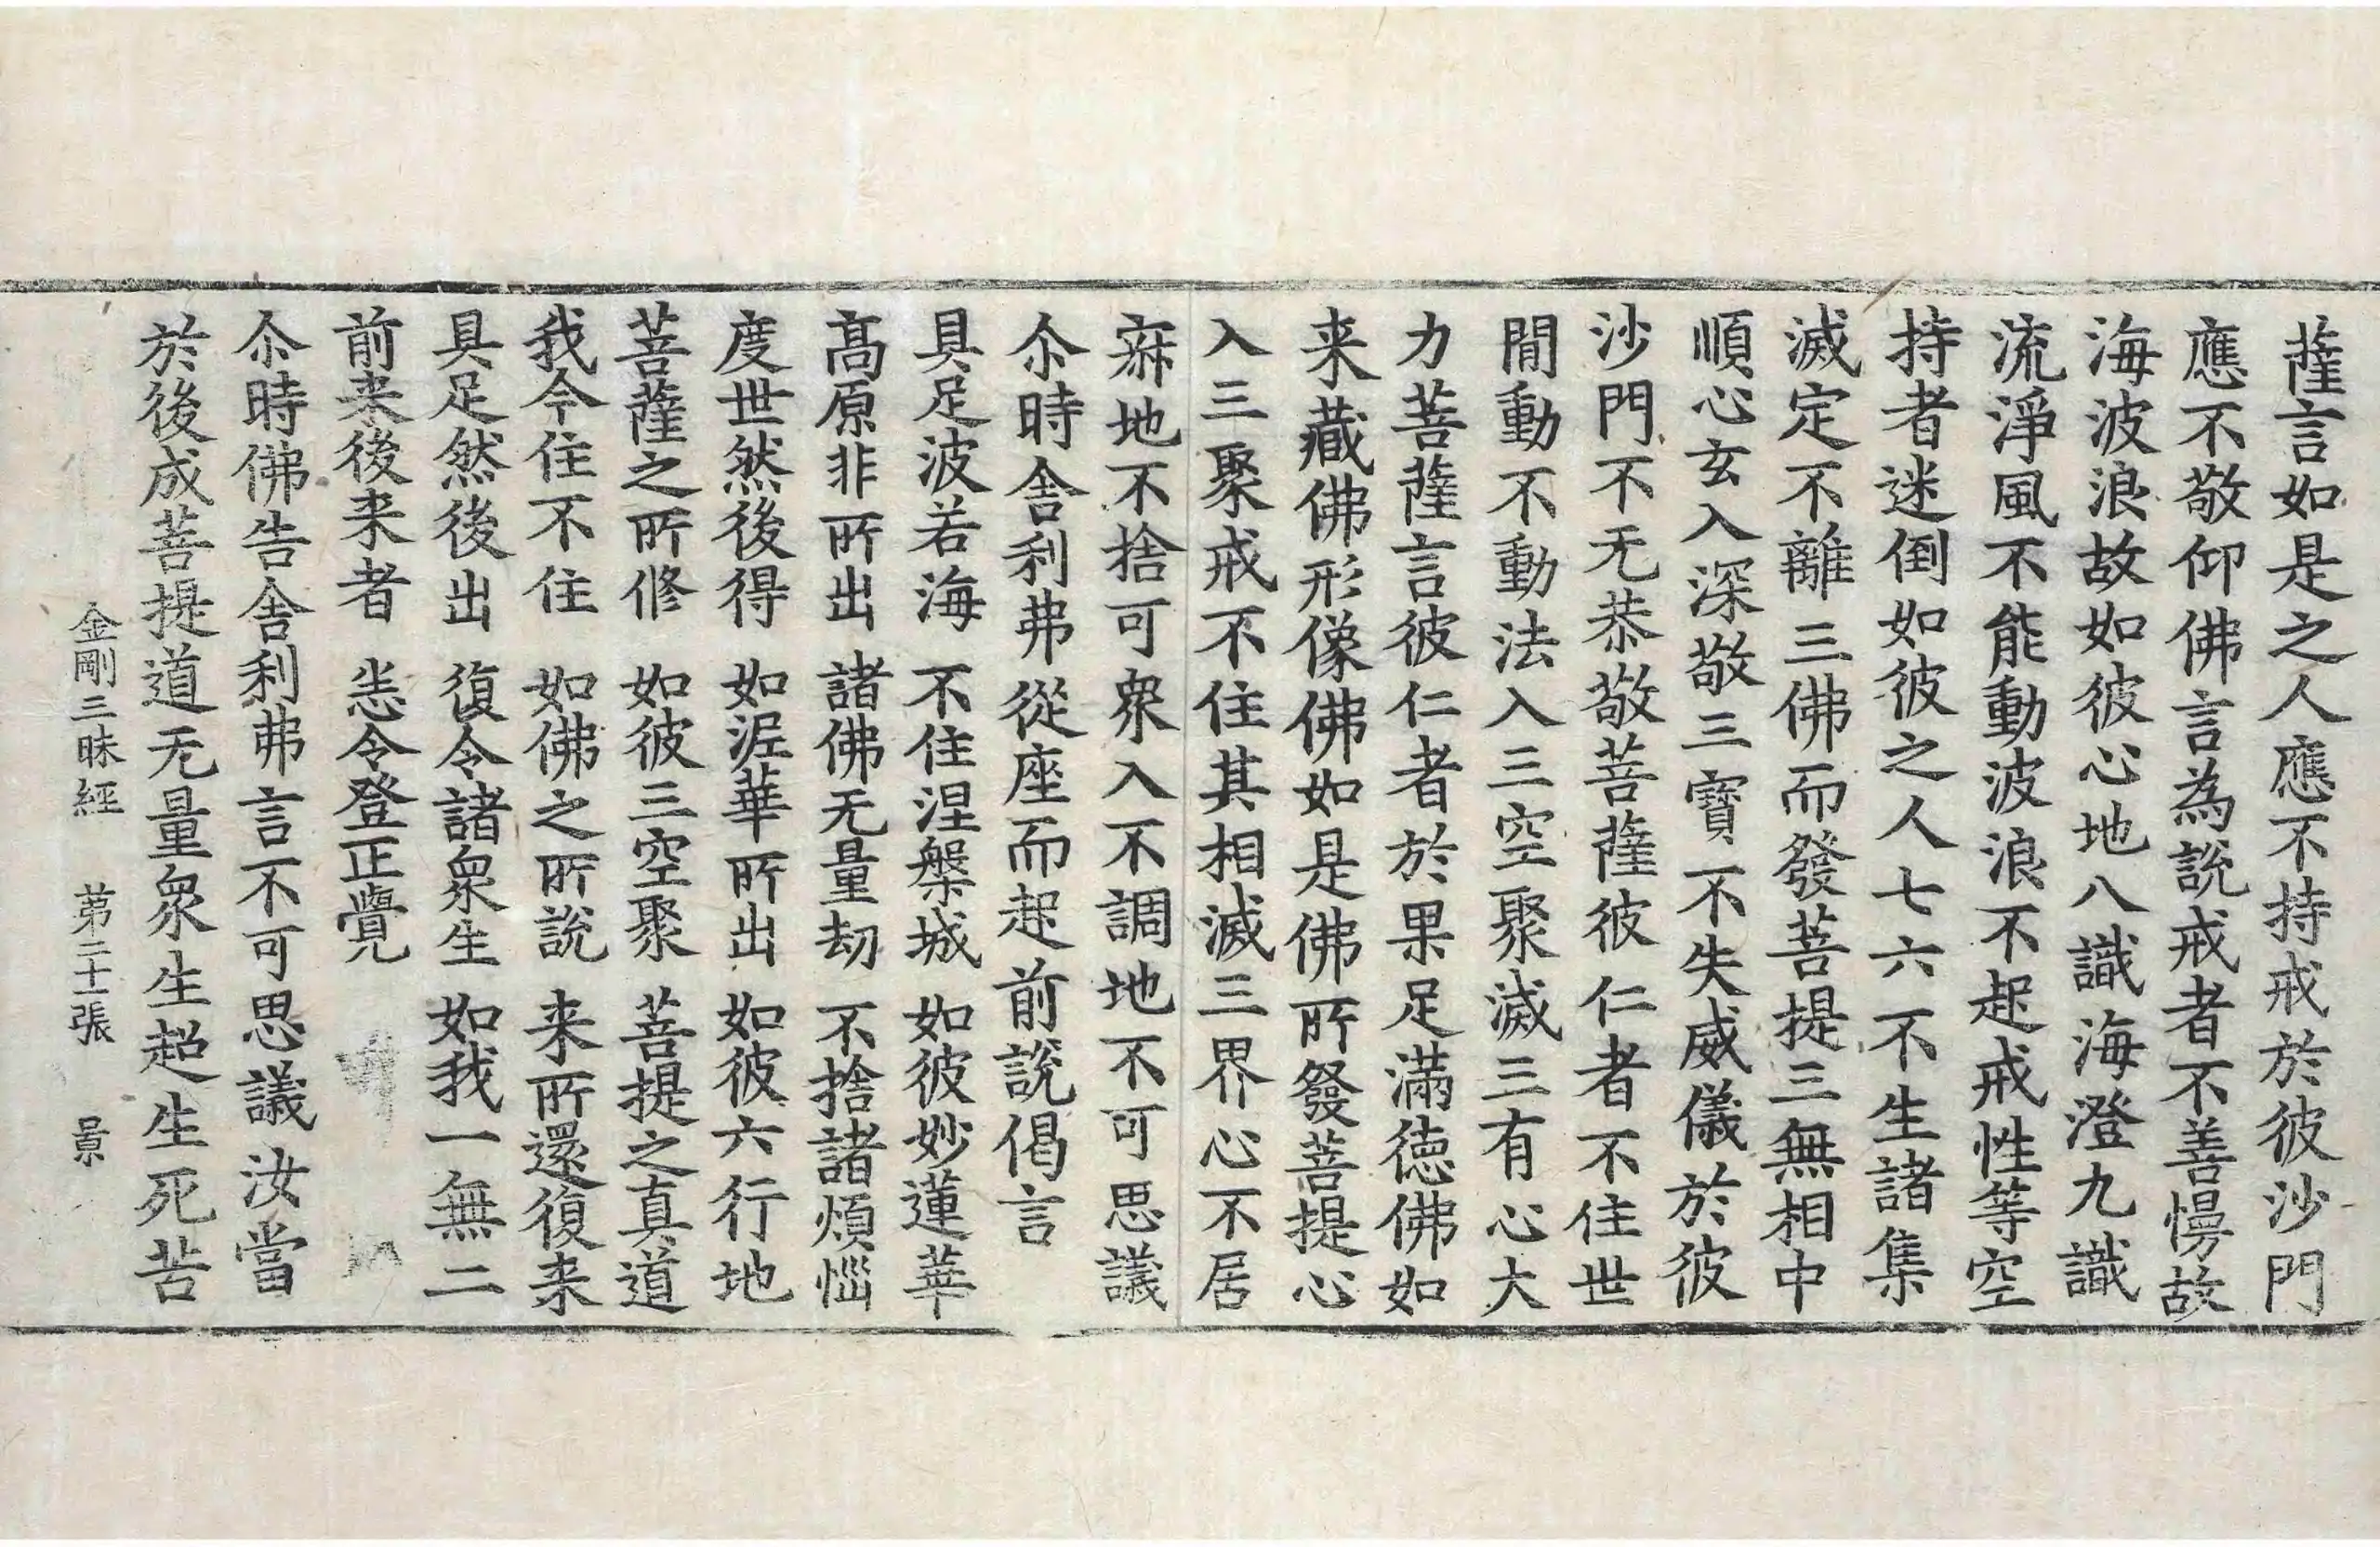 薩言如是之人應不持戒於彼沙門
應不敬仰佛言為說戒者不善慢故
海波浪故如彼心地八識海澄九識
流淨風不能動波浪不起戒性等空
持者迷倒如彼之人七六不生諸集
滅定不離三佛而發菩提三無相中
順心玄入深敬三寶不失威儀於彼
沙門不无恭敬菩薩彼仁者不住世
閒動不動法入三空聚滅三有心大
力菩薩言彼仁者於果足滿德佛如
来藏佛形像佛如是佛所發菩提心
入三聚戒不住其相滅三界心不居
寂地不捨可衆入不調地不可思議
尒時舍利弗從座而起前說偈言
具足波若海 不住涅槃城 如彼妙蓮華
髙原非所出 諸佛无量劫 不捨諸煩惱
度世然後得 如泥華所出 如彼六行地
菩薩之所修 如彼三空聚 菩提之真道
我今住不住 如佛之所說 来所還復来
具足然後出 復令諸衆生 如我一無二
前来後来者 悉令登正覺
尒時佛告舍利弗言不可思議汝當
於後成菩提道无量衆生超生死苦
金剛三昧經 苐二十張 景